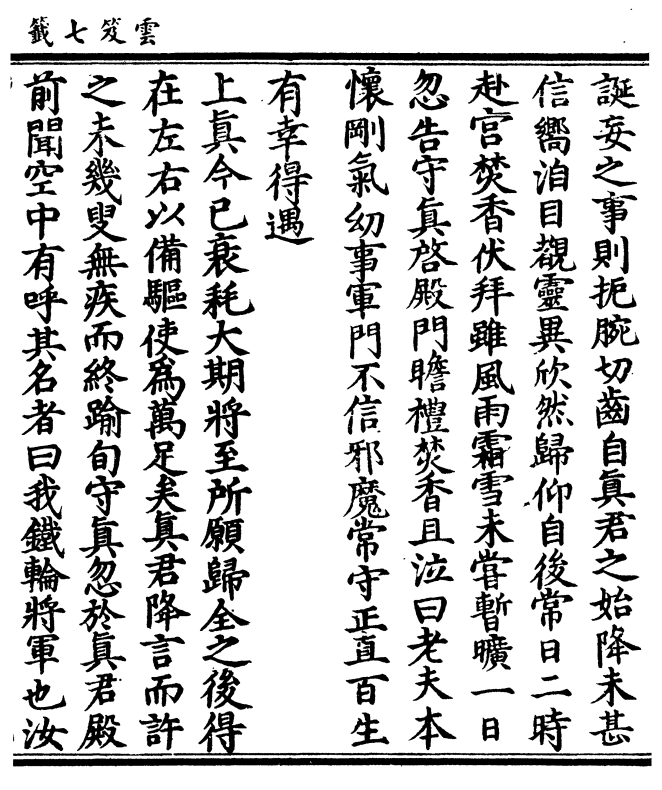 雲笈七籤
誕妄之事則扼腕切齒自真君之始降未甚
信嚮洎目覩靈異欣然歸仰自後常日二時
赴宮焚香伏拜雖風雨霜雪未嘗暫曠一日
忽告守真啓殿門瞻禮焚香且泣曰老夫本
懷剛氣幼事軍門不信邪魔常守正直百生
有幸得遇
上真今已衰耗大期將至所願歸全之後得
在左右以備驅使為萬足矣真君降言而許
之未幾叟無疾而終踰旬守真忽於真君殿
前聞空中有呼其名者曰我鐵輪將軍也汝